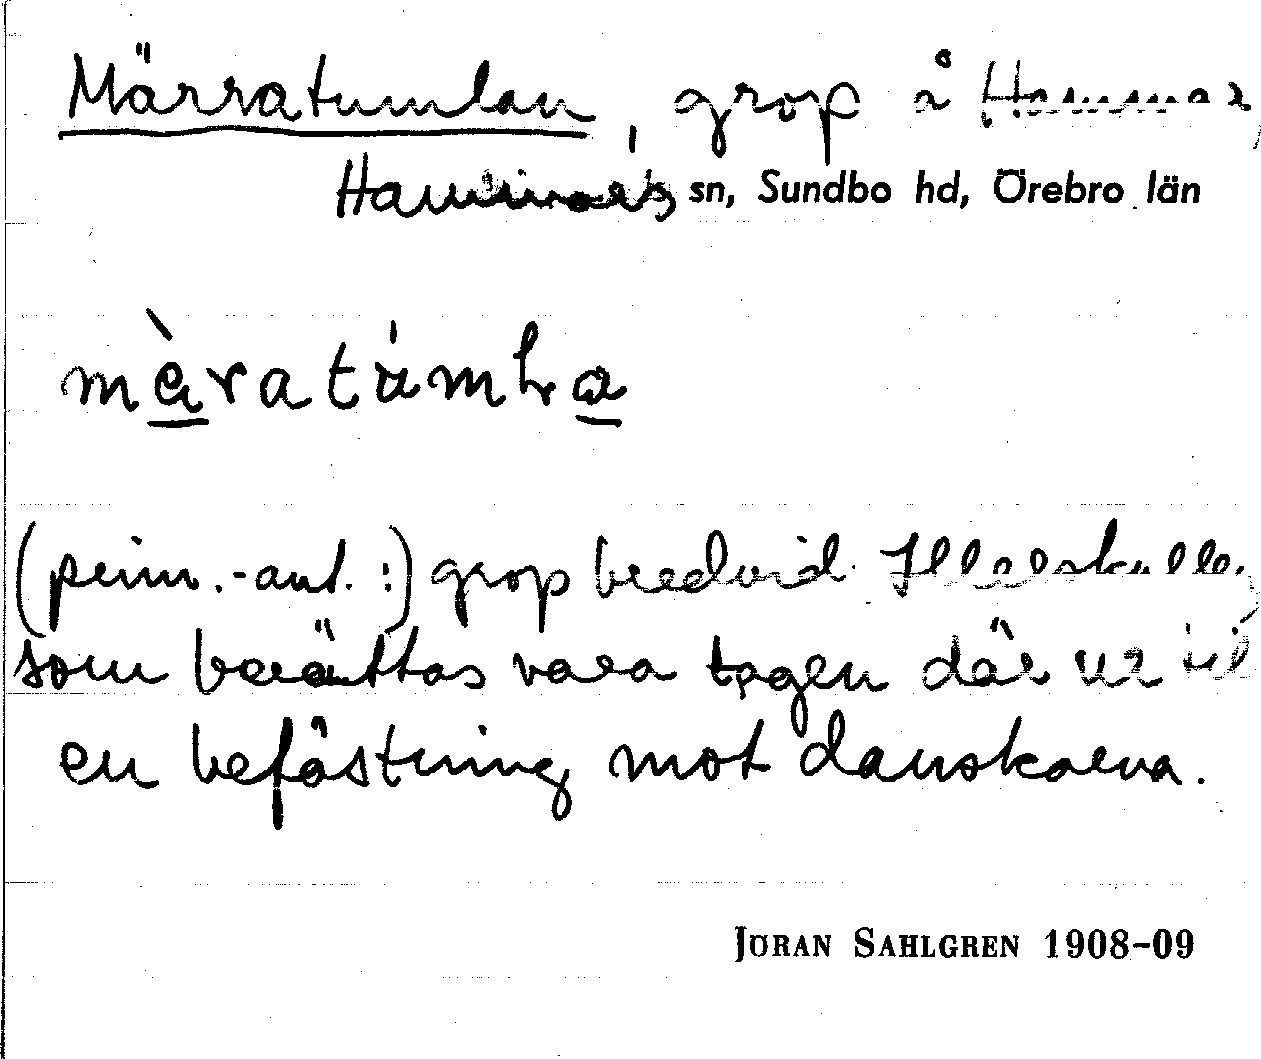 Märratumlan, grop å Hammar,
Hammars sn, Sundbo hd, Örebro län
mè̱ratùmla̱
(prim.-ant.:) grop bredvid Illerskulle,
som berättas vara tagen där ur til
en befästning mot danskarna.
JÖRAN SAHLGREN 1908-09